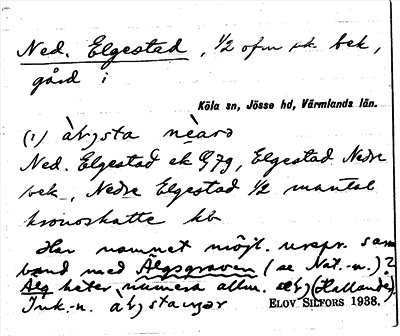 Ned. Elgestad, 1/2 ofm sk. bek,
gård i
Köla sn, Jösse hd, Värmlands län.
(1)
Ned. Elgestad ek G 79, Elgestad Nedre
bek, Nedre Elgestad 1/2 mantal
kronoskatte kb
Har namnet möjl. urspr. sam
band med Älgsgraven (se Nat.-n.)?
Älg heter numera allm. (Hallande).
Ink.-n.
ELOV SILFORS 1938.